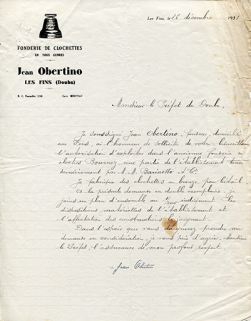 FONDERIE DE CLOCHETTES
EN TOUS GENRES
Jean Obertino
LES FINS (Doubs)
Les Fins, le décembre 193
Monsieur le Préfet du Doubs,
Je soussigné Jean Obertino, fondeur, demeurant
aux Fins, ai l'honneur de solliciter de votre bienveillance
l'autorisation d'exploiter dans l'ancienne fonderie
Charles Bournez, une partie de l'établissement tenu
antérieurement par M.M. & Cie.
Je fabrique des clochettes en bronze pour bétail.
à la présente demande en double exemplaire, je
joins un plan d'ensemble au indiquant les
dispositions matérielles de l'établissement et
l'affectation des constructions
Dans l'espoir que vous prendre ma
demande en considération, je vous prie d'agréer, Monsieur
le Préfet, l'assurance de mon profond respect.
Jean Obertino